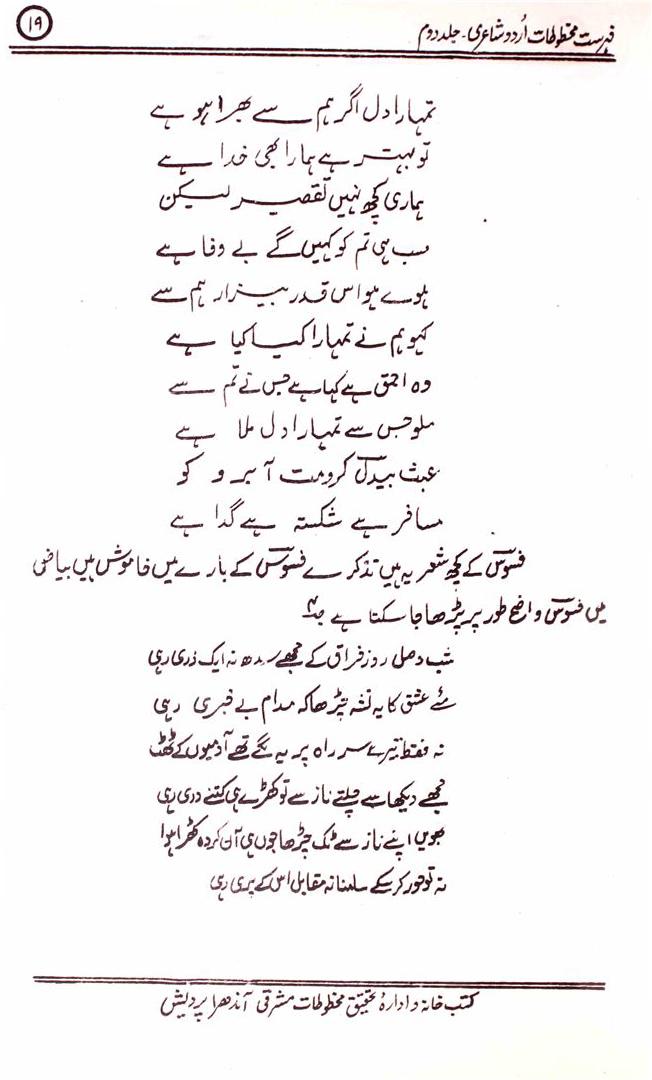 ۱۹
فہرست مخطوطات اُردو شاعری - جلد دوم
تمہارا دل اگر ہم سے بھرا ہو ہے
تو بہتر ہے ہمارا بھی خدا ہے
ہماری کچھ نہیں تقصیر لیکن
سب ہی تم کو کہیں گے بے وفا ہے
ہوے ہو اس قدر بیزار ہم سے
کہو ہم نے تمہارا کیا کیا ہے
وہ احمق ہے کہا ہے جس نے تم سے
ملو جس سے تمہارا دل ملا ہے
عبث بیدل کرو مت آبرو کو
مسافر ہے شکستہ ہے گدا ہے
فسوس کے کچھ شعر یہ ہیں تذکرے فسوس کے بارے میں خاموش ہیں بیاض
میں فسوس واضح طور پر پڑھا جا سکتا ہے
شب وصل روز فراق کے مجھے سدھ نہ ایک ذری رہی
مئے عشق کا یہ نشہ چڑھا کہ مدام بے خبری رہی
نہ فقط تیرے سر راہ پر یہ لگے تھے آدمیوں کے ٹھٹ
تجھے دیکھا سے چلتے ناز سے تو کھڑے ہی کتنے دری رہی
جوں اپنے ناز سے ٹک چڑھا جوں ہی آن کر وہ کھڑا ہوا
نہ تو حور کر سکے سامنا نہ مقابل اس کے پری رہی
کتب خانہ و ادارۂ تحقیق مخطوطات مشرقی آندھرا پردیش